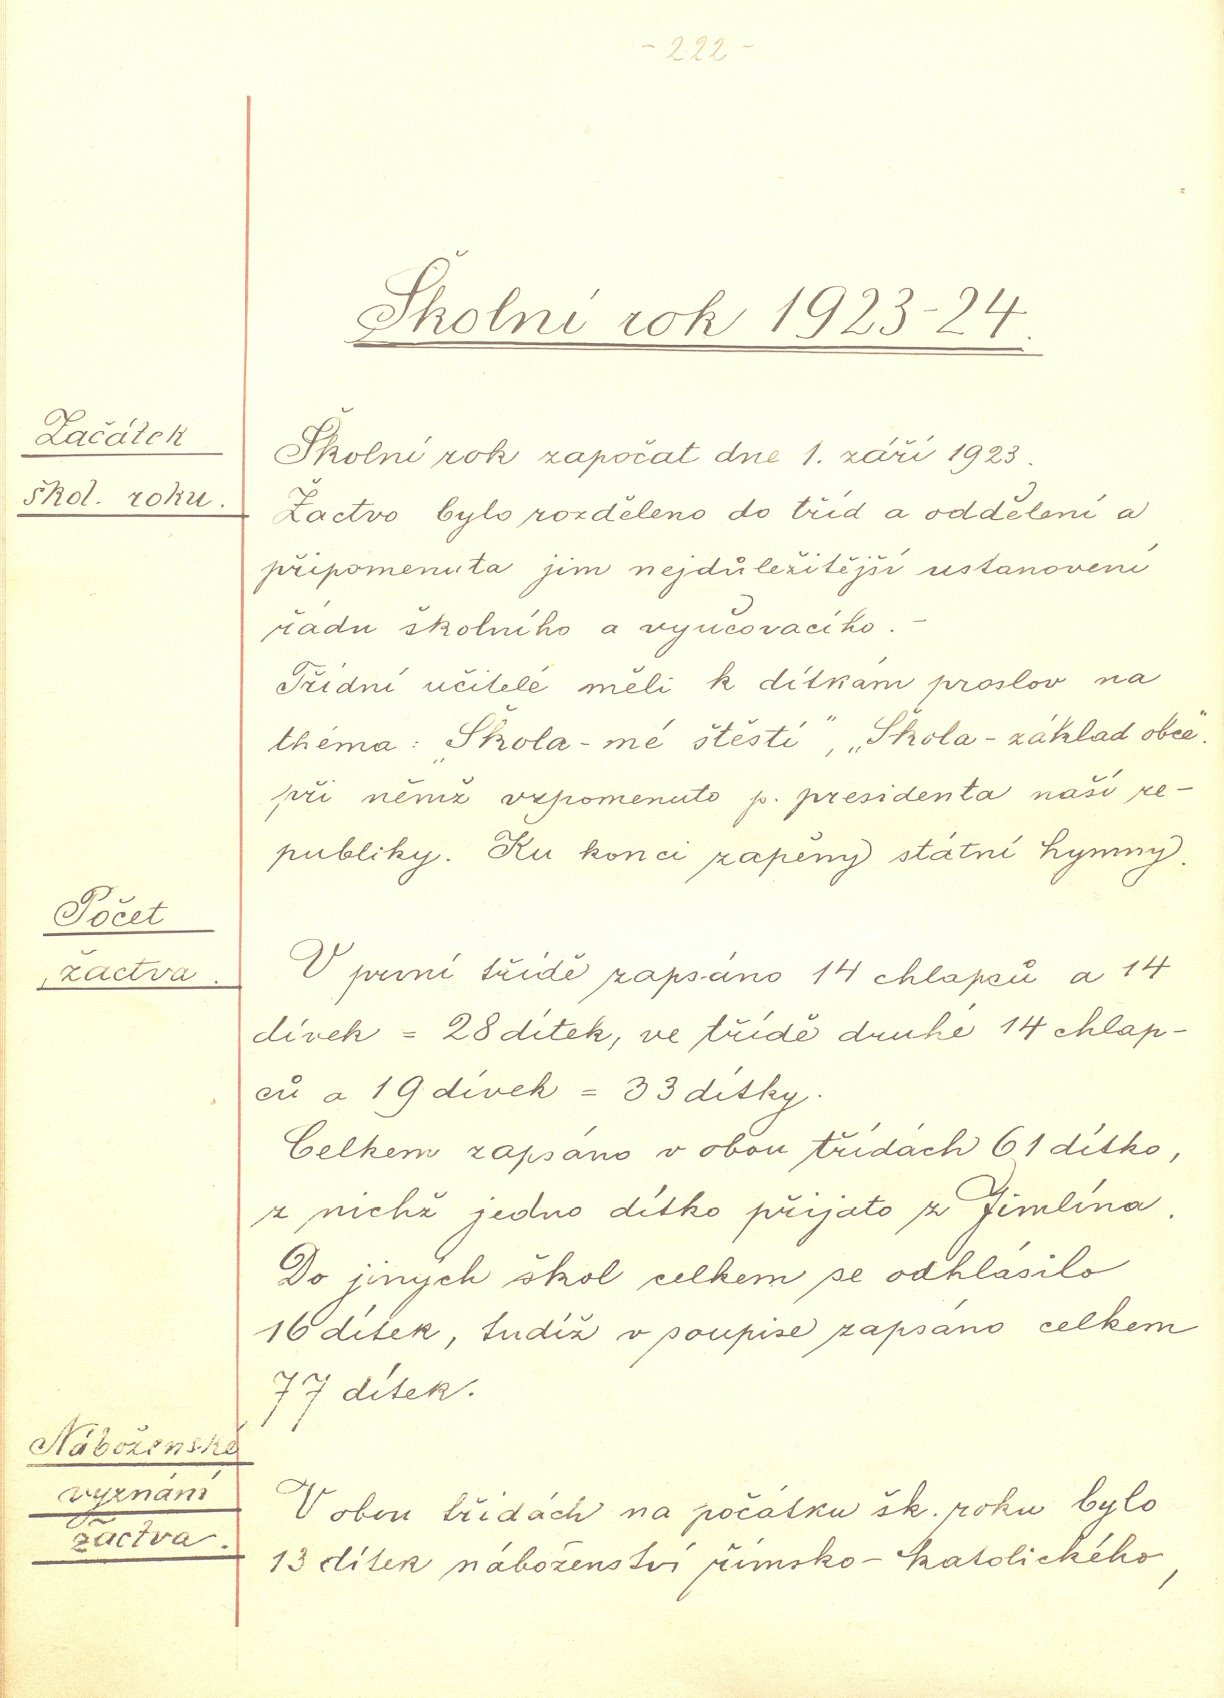 - 222 -
Školní rok 1923-24.
Začátek
škol. roku.
Školní rok započat dne 1. září 1923.
Žactvo bylo rozděleno do tříd a oddělení a
připomenuta jim nejdůležitější ustanovení
řádu školního a vyučovacího. -
Třídní učitelé měli k dítkám proslov na
théma: „Škola - mé štěstí", „Škola - základ obce".
při němž vzpomenuto p. presidenta naší re-
publiky. Ku konci zapěny státní hymny.
Počet
žactva.
V první třídě zapsáno 14 chlapců a 14
dívek = 28 dítek, ve třídě druhé 14 chlap-
ců a 19 dívek = 33 dítky.
Celkem zapsáno v obou třídách 61 dítko,
z nichž jedno dítko přijato z Jimlína.
Do jiných škol celkem se odhlásilo
16 dítek, tudíž v soupise zapsáno celkem
77 dítek.
Náboženské
vyznání
žactva.
V obou třídách na počátku šk. roku bylo
13 dítek náboženství římsko - katolického,